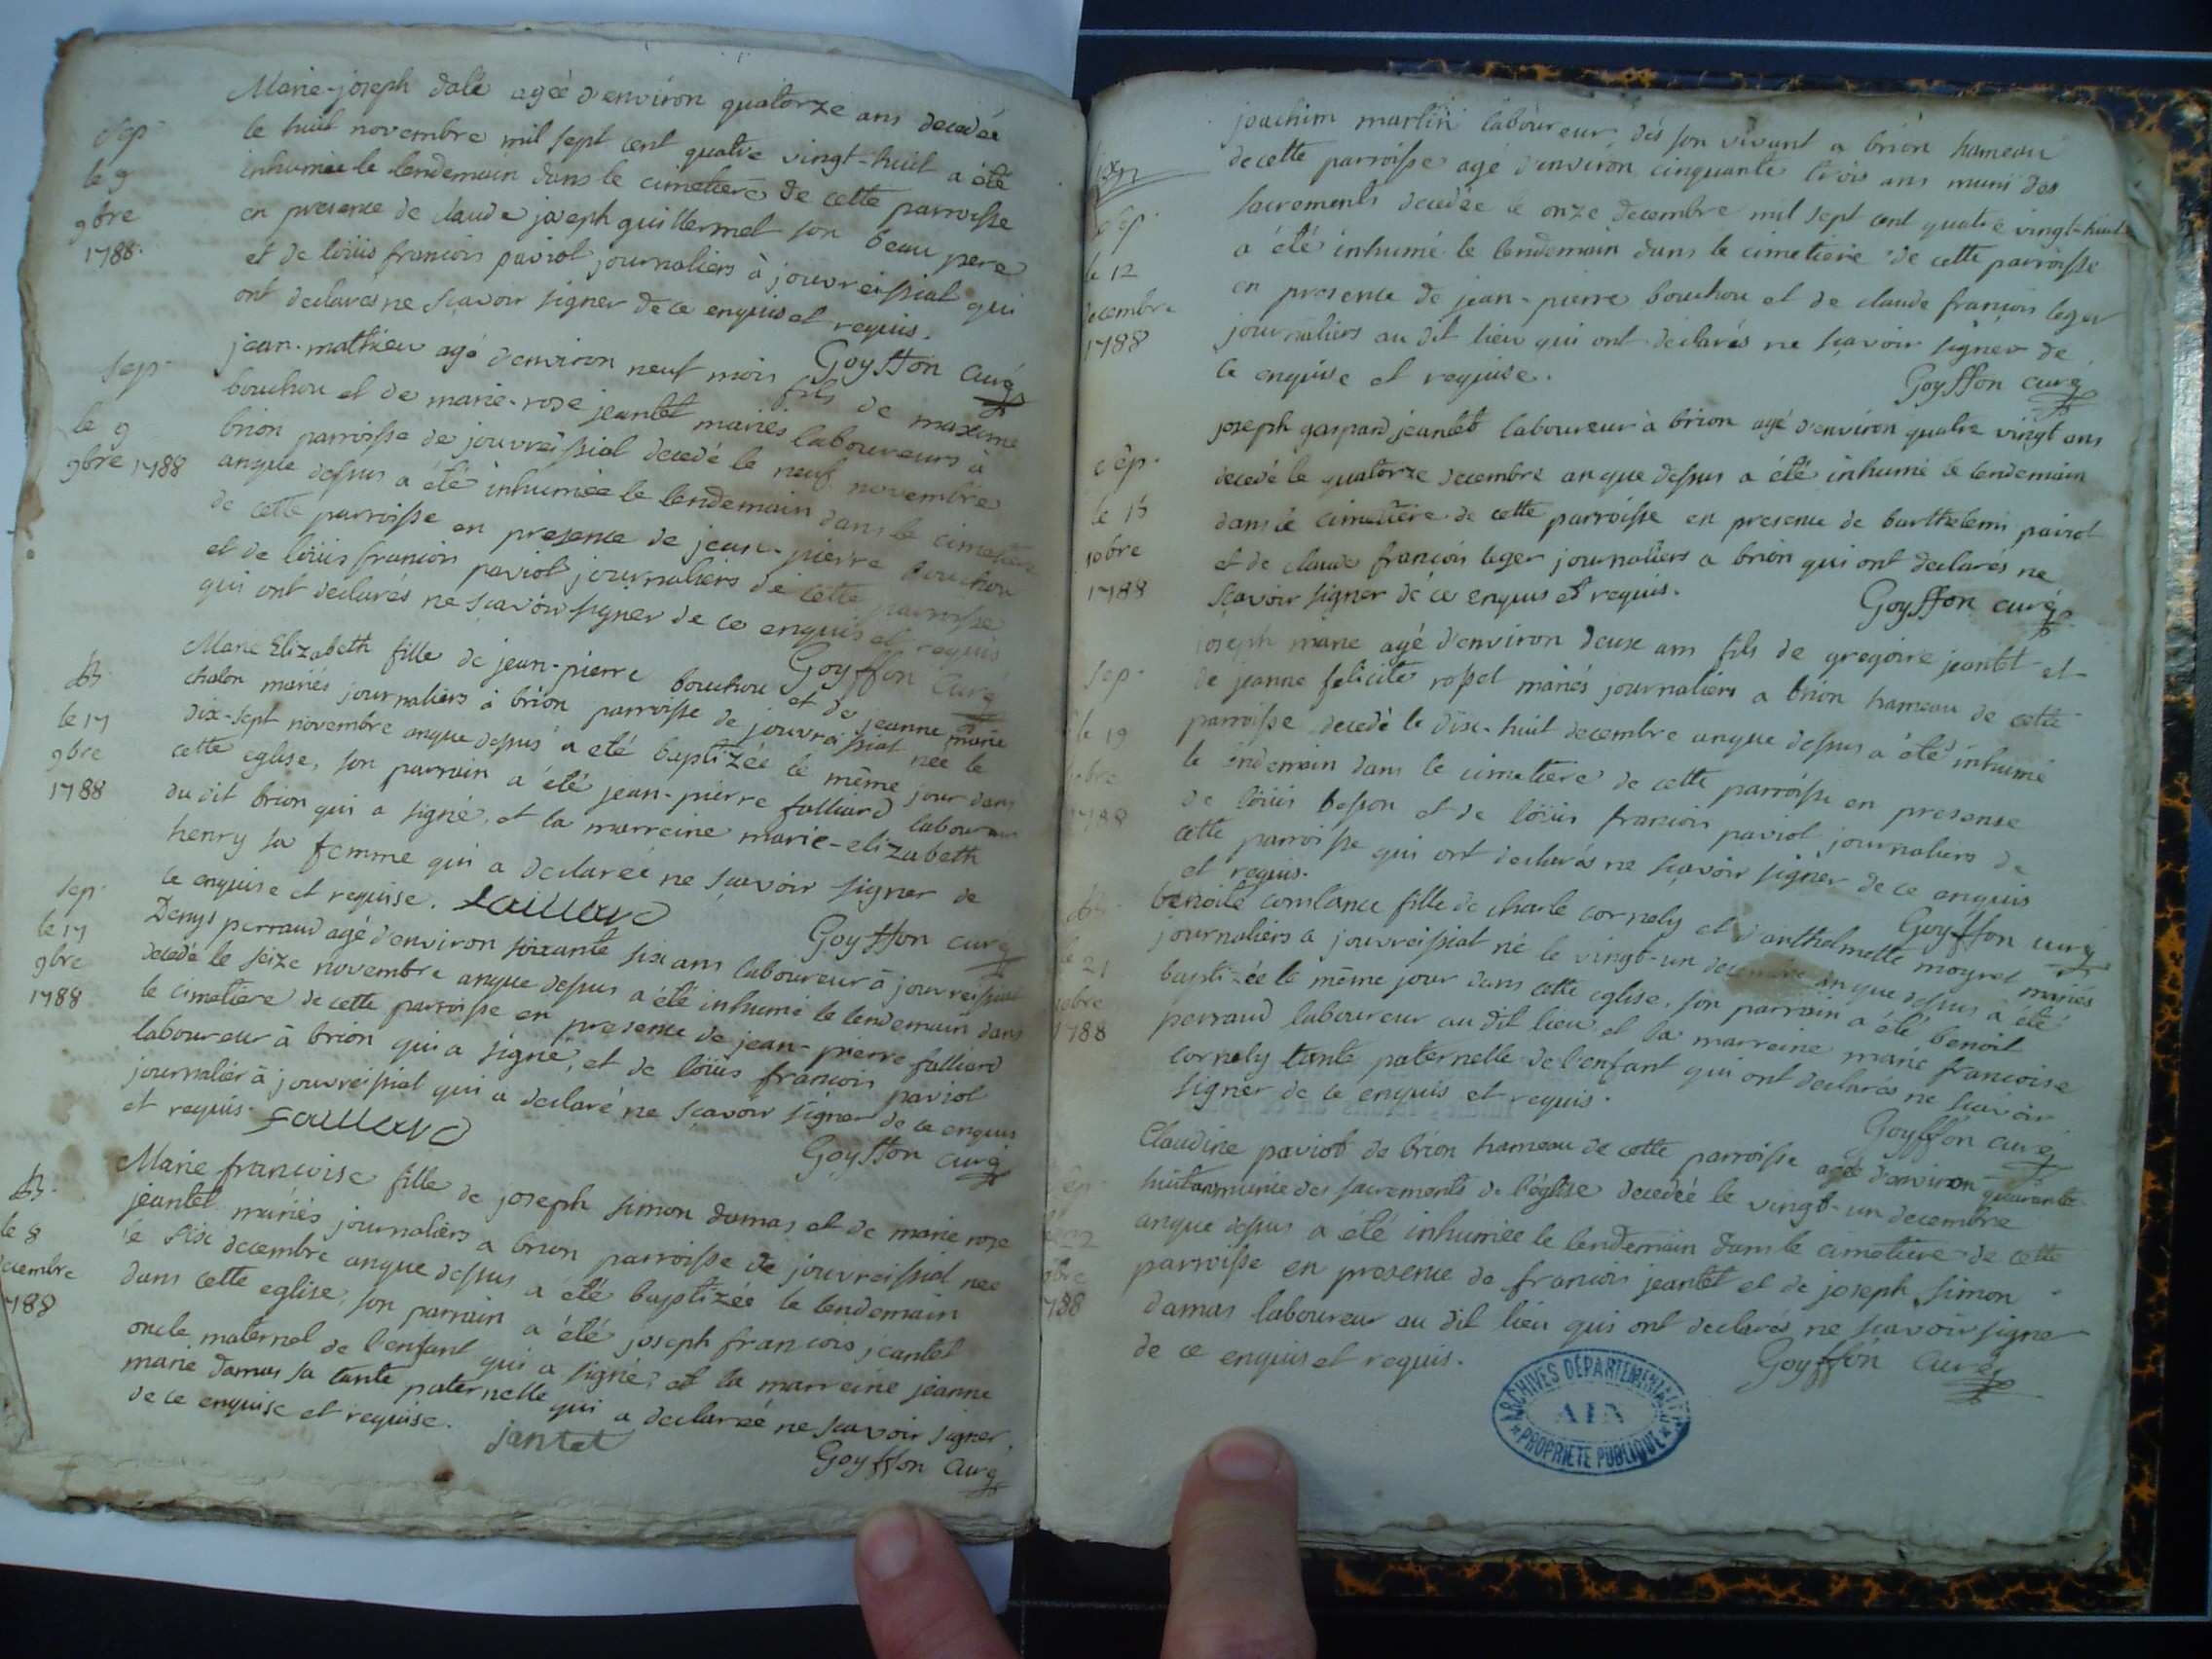 Marie-joseph dalé agéé d'environ quatorze ans decedéé
Sep.
le 9
9bre
1788.
le huit novembre mil sept cent quatre vingt-huit a été
inhumée le lendemain dans le cimetiere de cette parroisse
en presence de claude joseph guillermet son beau pere
et de loüis francois paviot journaliers à jouvreissiat qui
ont declarés ne sçavoir signer de ce enquis et requis.
Goyffon curé
Sep.
le 9
9bre 1788
jean-mathieu agé d'environ neuf mois fils de maxime
bouchou et de marie-rose jeantet mariés laboureurs à
brion parroisse de jouvreissiat decedé le neuf novembre
anque dessus a été inhumée le lendemain dans le cimetiere
de cette parroisse en presence de jean-pierre bouchou
et de loüis francois paviot journaliers de cette parroisse
qui ont declarés ne sçavoir signer de ce enquis et requis
Goyffon curé
B.
le 17
9bre
1788
Marie Elizabeth fille de jean-pierre bouchou et de jeanne marie
chalon mariés journaliers à brion parroisse de jouvreissiat née le
dix-sept novembre anque dessus a eté baptizéé le même jour dans
cette eglise, son parrain a été jean-pierre falliard laboureur
du dit brion qui a signé, et la marreine marie-elizabeth
henry sa femme qui a declaréé ne sçavoir signer de
ce enquise et requise. faillard
Goyffon curé
Sep.
le 17
9bre
1788
Denys perraud agé d'environ soixante six ans laboureur à jouvreissiat
decedé le seize novembre anque dessus a été inhumé le lendemain dans
le cimetiere de cette parroisse en presence de jean-pierre falliard
laboureur à brion qui a signé, et de loüis francois paviot
journalier à jouvreissiat qui a declaré ne sçavoir signer de ce enquis
et requis. faillard
Goyffon curé
B.
le 8
decembre
1788
Marie francoise fille de joseph simon damas et de marie rose
jeantet mariés journaliers a brion parroisse de jouvreissiat née
le six decembre anque dessus a été baptizéé le lendemain
dans cette eglise, son parrain a été joseph francois jeantet
oncle maternel de l'enfant qui a signé, et la marreine jeanne
marie damas sa tante paternelle qui a declaréé ne sçavoir signer
de ce enquise et requise. jantet
Goyffon curé
joachim martin laboureur, dès son vivant a brion hameau
de cette parroisse agé d'environ cinquante trois ans muni des
Sep.
le 12
decembre
1788
sacrements decedéé le onze decembre mil sept cent quatre vingt-huit
a été inhumé le lendemain dans le cimetiere de cette parroisse
en presence de jean-pierre bouchou et de claude francois leger
journaliers au dit lieu qui ont declarés ne sçavoir signer de
ce enquise et requise.
Goyffon curé
Sep.
le 15
10bre
1788
joseph gaspard jeantet laboureur à brion agé d'environ quatre vingt ans
decedé le quatorze decembre anque dessus a été inhumé le lendemain
dans le cimetiere de cette parroisse en presence de barthelemi paviot
et de claude francois leger journaliers a brion qui ont declarés ne
sçavoir signer de ce enquis et requis.
Goyffon curé
Sep.
le 19
1788
joseph marie agé d'environ deux ans fils de gregoire jeantet et
de jeanne felicité rosset mariés journaliers a brion hameau de cette
parroisse decedé le dix-huit decembre anque dessus a été inhumé
le lendemain dans le cimetiere de cette parroisse en presense
de loüis besson et de loüis francois paviot journaliers de
cette parroisse qui ont declarés ne sçavoir signer de ce enquis
et requis.
Goyffon curé
le 21
10bre
1788
benoite constance fille de charle cornely et d'anthelmette moyret mariés
journaliers a jouvreissiat né le vingt-un decembre anque dessus a été
baptizée le même jour dans cette eglise, son parrain a été benoit
perraud laboureur au dit lieu et la marreine marie francoise
cornely tante paternelle de l'enfant qui ont declarés ne sçavoir
signer de ce enquis et requis.
Goyffon curé
Sep.
22
10bre
1788
Claudine paviot de brion hameau de cette parroisse agéé d'environ quarante
huit ans munie des sacrements de l'église decedéé le vingt-un decembre
anque dessus a été inhumée le lendemain dans le cimetiere de cette
parroisse en presence de francois jeantet et de joseph simon
damas laboureur au dit lieu qui ont declarés ne sçavoir signer
de ce enquis et requis.
Goyffon curé
ARCHIVES DÉPARTEMENTALES
AIN
PROPRIÉTÉ PUBLIQUE